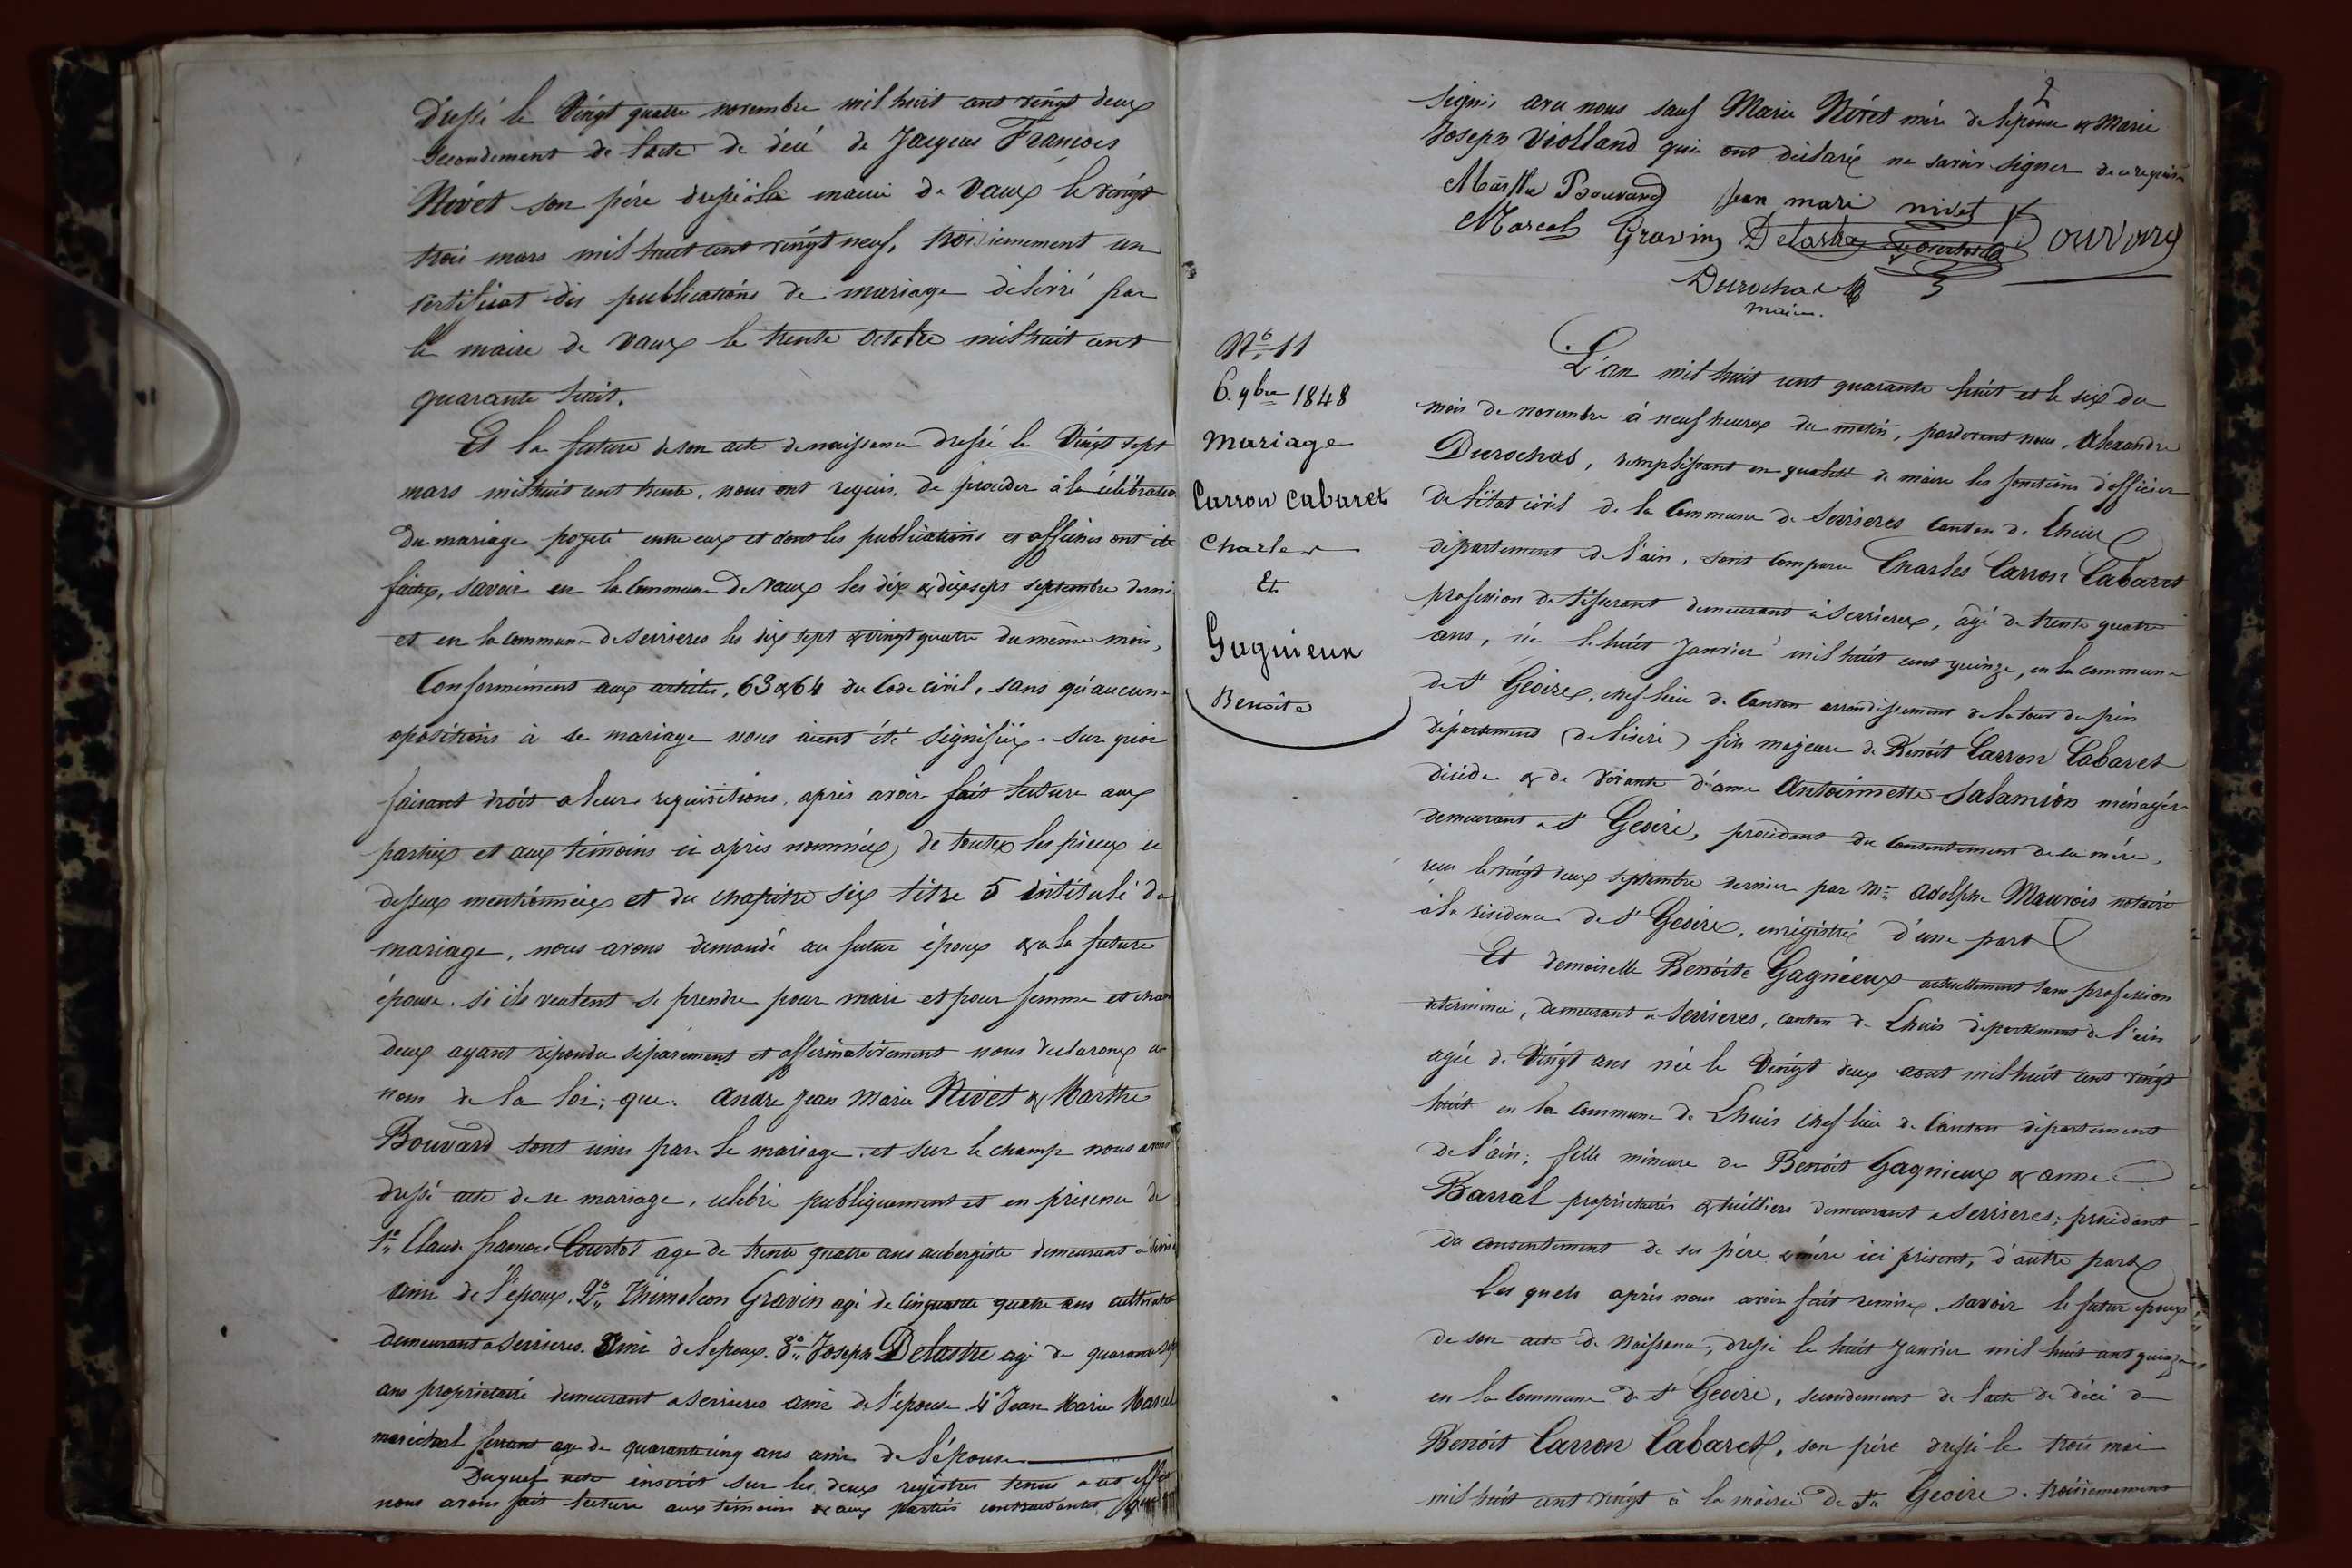 Dressé le Vingt quatre novembre mil huit cent vingt deux
secondement de l'acte de décé de Jacques François
Nivet son père dressé à la mairie de Vaux le vingt
trois mars mil huit cent vingt neuf, troisiemement un
certificat des publications de mariage délivré par
le maire de Vaux le trente octobre mil huit cent
quarante huit.
Et la future de son acte de naissance dressé le Vingt sept
mars mil huit cent trente, nous ont requis de procéder à la célébration
du mariage projeté entre eux et dont les publications et affiches ont été
faites, savoir en la commune de Vaux les dix & dix sept septembre
et en la commune de serrieres les dix sept & vingt quatre du même mois,
Conformément aux articles, 63 & 64 du Code civil, sans qu'aucune
opositions à ce mariage nous aient été signifiée. Sur quoi
faisant droit a leurs requisitions, après avoir fait lecture aux
parties et aux témoins ci après nommés, de toutes les pieces ci
dessus mentionnées et du chapitre six titre 5 intitulé du
mariage, nous avons demandé au futur époux & a la future
épouse, si ils veulent se prendre pour mari et pour femme et
deux ayant répondu séparément et affirmativement nous declarons au
nom de la loi, que: andre Jean Marie Nivet & Marthe
Bouvard sont unis par le mariage. et sur le champ nous avons
dressé acte de ce mariage, celebré publiquement et en présence de
1° Claude françois Courtot age de trente quatre ans aubergiste demeurant a
ami de l'epoux. 2° Thimoleon Gravin agé de cinquante quatre ans cultivateur
demeurant a serrieres. ami de l'epoux. 3° Joseph Delastre agé de quarante
ans proprietaire demeurant a serrieres ami de l'épouse 4° Jean Marie Marcel
maréchal ferrant age de quarante cinq ans ami de l'épouse
Duquel acte inscrit sur les deux registres tenus a cet effet
nous avons fait lecture aux témoins & aux parties contractantes
2
signés avec nous sauf Marie Nivet mére de l'épouse & Marie
Joseph Violland qui ont déclaré ne savoir signer de ce requis
Marthe Bouvard Jean mari nivet
Marcel Gravin Delastre Bouvard
Durochas
maire.
N° 11
6. 9bre 1848
Mariage
Carron Cabaret
Charles
Et
Gagnieux
Benoite
L'an mil huit cent quarante huit et le six du
mois de novembre à neuf heures du matin, pardevant nous, Alexandre
Durochas, remplissant en qualité de maire les fonctions d'officier
de l'état civil de la Commune de Serrieres Canton de Lhuis
département de l'ain, sont comparu Charles Carron Cabaret
profession de tisserant demeurant à Serrieres, agé de trente quatre
ans, né le huit Janvier mil huit cent quinze, en la commune
de St Geoire, chef lieu de Canton arrondissement de la tour du pin
département (de l'isère) fils majeure de Benoit Carron Cabaret
décédé & de vivante d'ame Antoinnette Salamion ménagère
demeurant a St Geoire, procédant du consentement de sa mére,
reçu le vingt deux septembre dernier par Me adolphe Maurois notaire
à la résidence de St Geoire, enrégistré d'une part
Et demoiselle Benoite Gagnieux actuellement sans profession
déterminée, demeurant a serrieres, canton de Lhuis département de l'ain
agée de Vingt ans née le Vingt deux aout mil huit cent vingt
huit en la commune de Lhuis chef lieu de Canton département
de l'ain; fille mineure de Benoit Gagnieux & anne
Barral propriétaires demeurant a serrieres; procédant
du consentement de ses pére & mére ici présent, d'autre part
Les quels après nous avoir fait remise, savoir le futur époux
de son acte de naissance, dressé le huit Janvier mil huit cent quinze
en la commune de St Geoire, secondement de l'acte de décé de
Benoit Carron Cabaret, son pére dressé le trois mai
mil huit cent vingt à la mairie de St Geoire. troisiemement